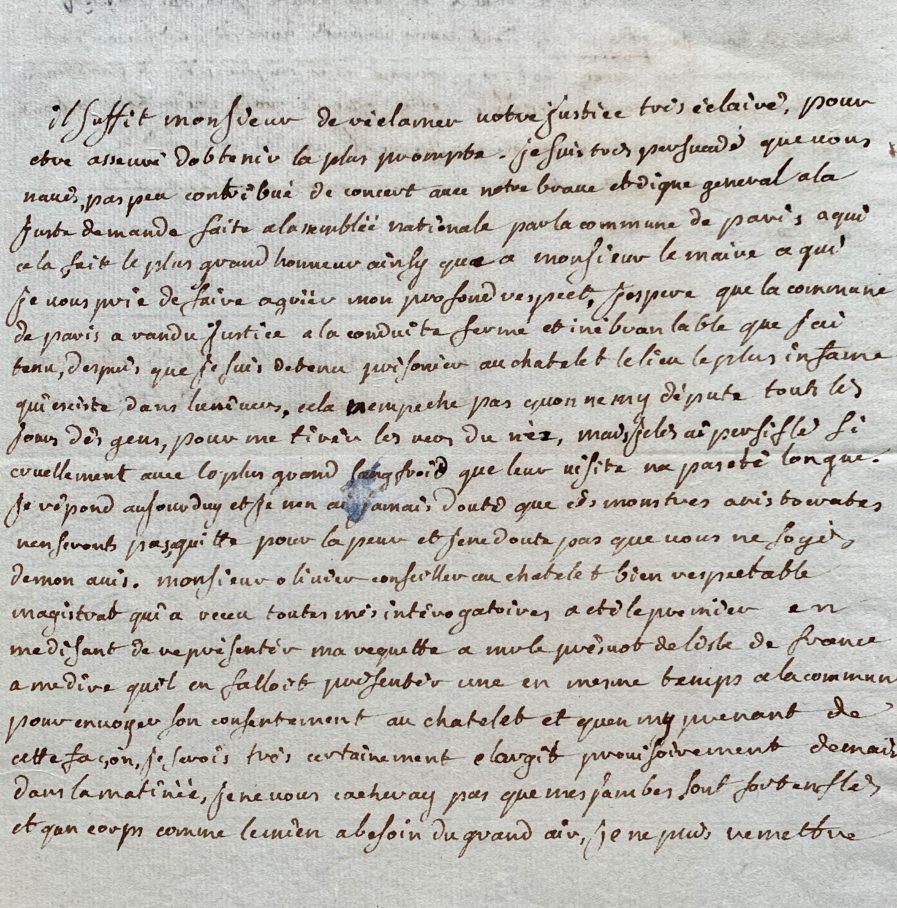 il suffit monsieur de réclamer votre justice très éclairé, pour
etre asseuré dobtenir la plus prompte. je suis très persuadé que vous
navés, pas peu contribué de concert avec notre brave et digne general a la
juste demande faite a lassemblée nationale par la commune de paris a qui
cela fait le plus grand honneur ainsy que a monsieur le maire a qui
je vous prie de faire agréér mon profond respect, jespere que la commune
de paris a randu justice a la conduite ferme et inébranlable que jai
tenu, despuis que je suis detenu prisonier au chatelet le lieu le plus infame
qui existe dans lunivers, cela nempeche pas quon ne my députe touts les
jours dés gens, pour me tirér les vers du néz, mais je lés ai persiflé si
cruellement avec le plus grand sangfroid que leur visite na pas été longue.
je répond aujourduy et je nen ai jamais douté que cés monstres aristocrates
nen seronts pas, quitte pour la peur et je ne doute pas que vous ne soyés
de mon avis. monsieur olivier conseiller au chatelet bien respectable
magistrat qui a receu toutes més intérogatoires a eté le premier en
me disant de représentér ma requette a mr le prévot de lisle de france
a me dire quil en falloit présentér une en mesme temps a la commun
pour envoyer son consentement au chatelet et quen my prenant de
cette façon, je serois très certainement elargit provisoirement demain
dans la matinéé, je ne vous cacheray pas que mes jambes sont fort enflés
et quun corps comme le mien a besoin du grand air, je ne puis remettre